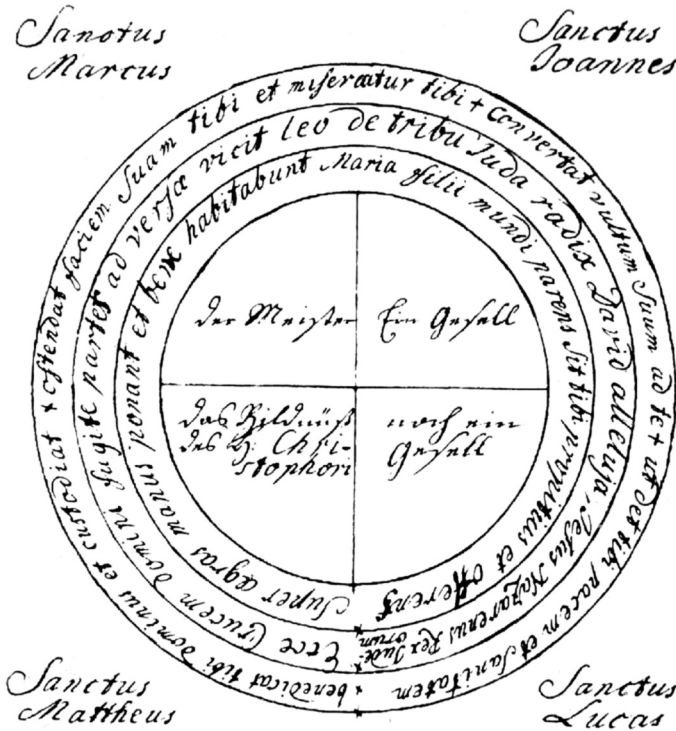 Sanctus
Marcus
Sanctus
Joannes
benedicat tibi Dominus et custodiat + ostendat faciem suam tibi et misereatur tibi + Convertat vultum suum ad te + ut det tibi pacem et Sanitatem
Ecce Crucem Domini fugite partes ad versæ vicit leo de tribu Juda radix David alleluja, Jesus Nazarenus Rex Jude-
orum
Super ægros manus ponant et bene habitabunt Maria filii mundi parens sit tibi propitius et offerens
der Meister
Ein Gesell
das Bildnüß
des H: Chri-
stophori
noch ein
Gesell
Sanctus
Mattheus
Sanctus
Lucas